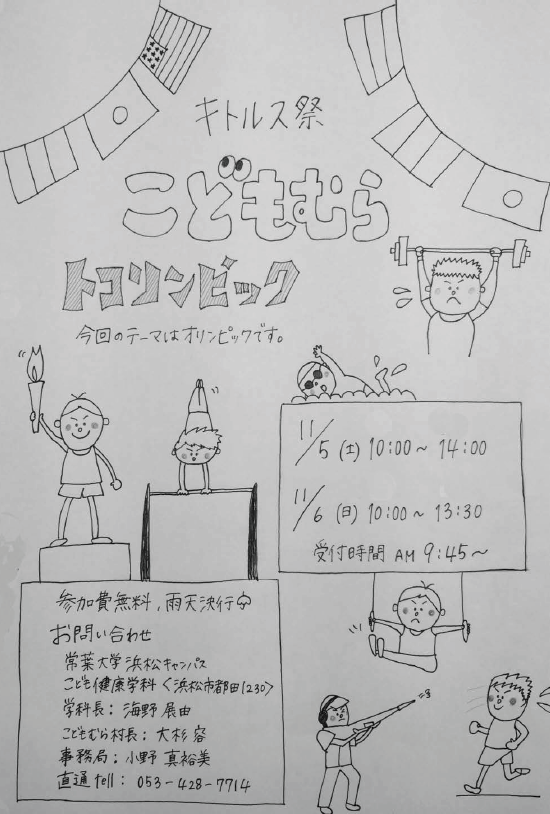 キトルス祭
こどもむら
トコリンピック
今回のテーマはオリンピックです。
11/5 (土) 10:00~ 14:00
11/6 (日) 10:00~ 13:30
受付時間 AM 9:45~
参加費無料,雨天決行
お問い合わせ
常葉大学浜松キャンパス
こども健康学科<浜松市都田1230>
学科長:海野 展由
こどもむら村長:大杉 容
事務局:小野 真裕美
直通tell: 053-428-7714